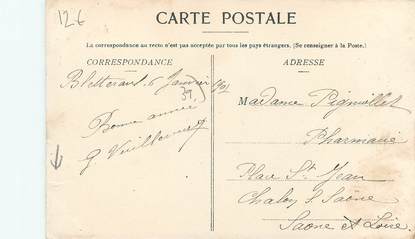 12.6
CARTE POSTALE
La correspondance au recto n'est pas acceptée par tous les pays étrangers. (Se renseigner à la Poste.)
CORRESPONDANCE
Bletterans 6 Janvier
39
Bonne année
G Vuillermoz
ADRESSE
Madame Pignollet
Pharmacie
Place St Jean
Chalon s Saône
Saone et Loire